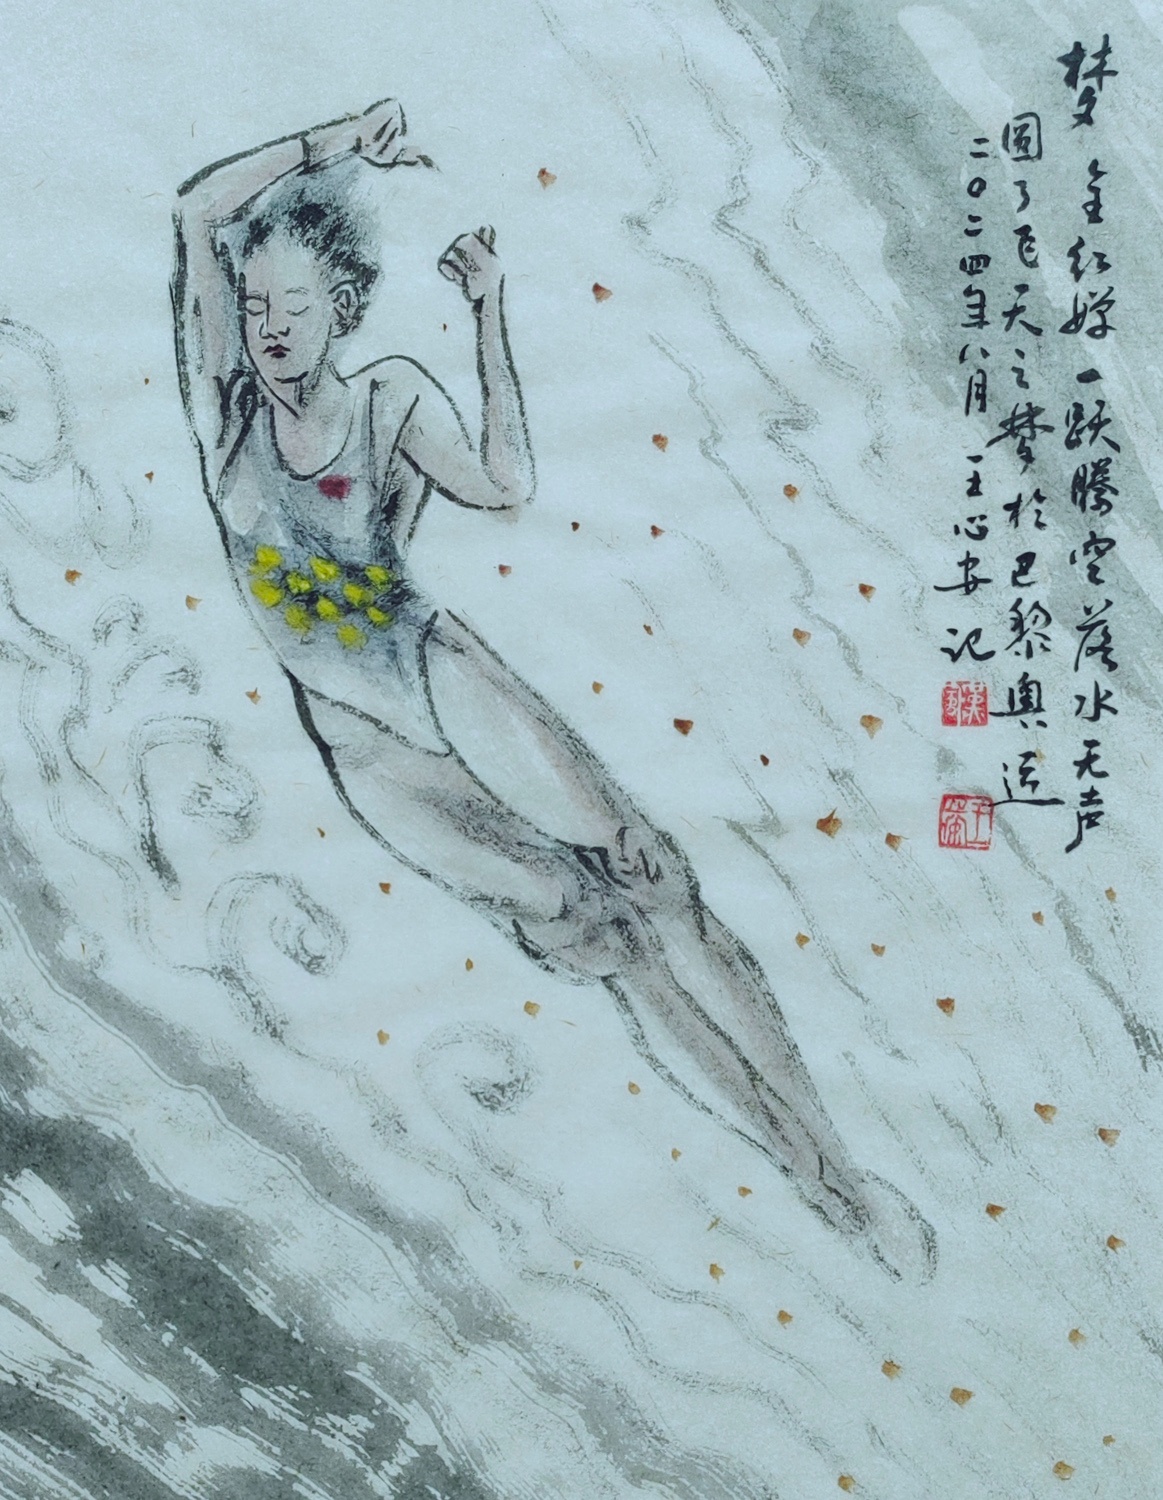 梦 全红婵一跃腾空落水无声
圆了飞天之梦於巴黎奥运
二〇二四年八月 王心安记